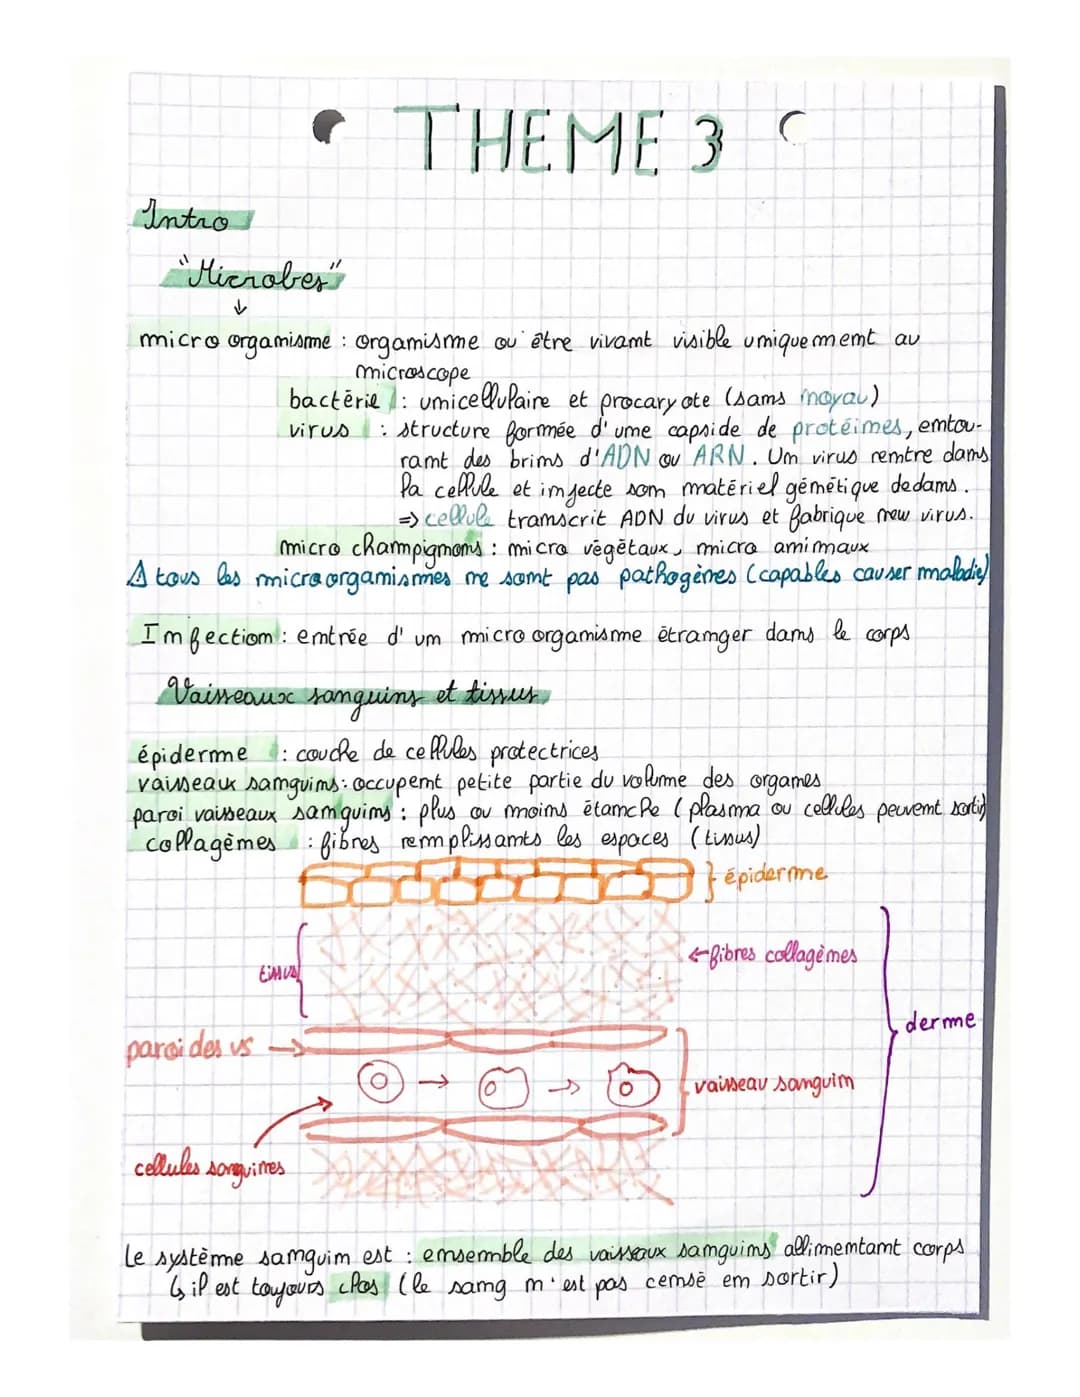 THEME 3
Intro
"Microbes"
↓
micro organisme : organisme ou être vivant visible uniquement au
microscope
bactérie : unicellulaire et procaryote (sans noyau)
virus : structure formée d'une capside de protéines, entou-
rant des brins d'ADN ou ARN. Un virus rentre dans
la cellule et injecte son matériel génétique dedans.
=> cellule transcrit ADN du virus et fabrique new virus.
micro champignons : micro végétaux, micro animaux
⚠ tous les microorganismes ne sont pas pathogènes (capables causer maladie)
Infection : entrée d'un micro organisme étranger dans le corps
Vaisseaux sanguins et tissus
épiderme : couche de cellules protectrices
vaisseaux sanguins : occupent petite partie du volume des organes
paroi vaisseaux sanguins : plus ou moins étanche (plasma ou cellules peuvent sortir)
collagènes : fibres remplissants les espaces (tissus)
épiderme
tissus
←fibres collagènes
derme
paroi des vs →
→ →
vaisseau sanguin
cellules sanguines
Le système sanguin est : ensemble des vaisseaux sanguins allimentant corps
↳ il est toujours clos (le sang n'est pas censé en sortir)